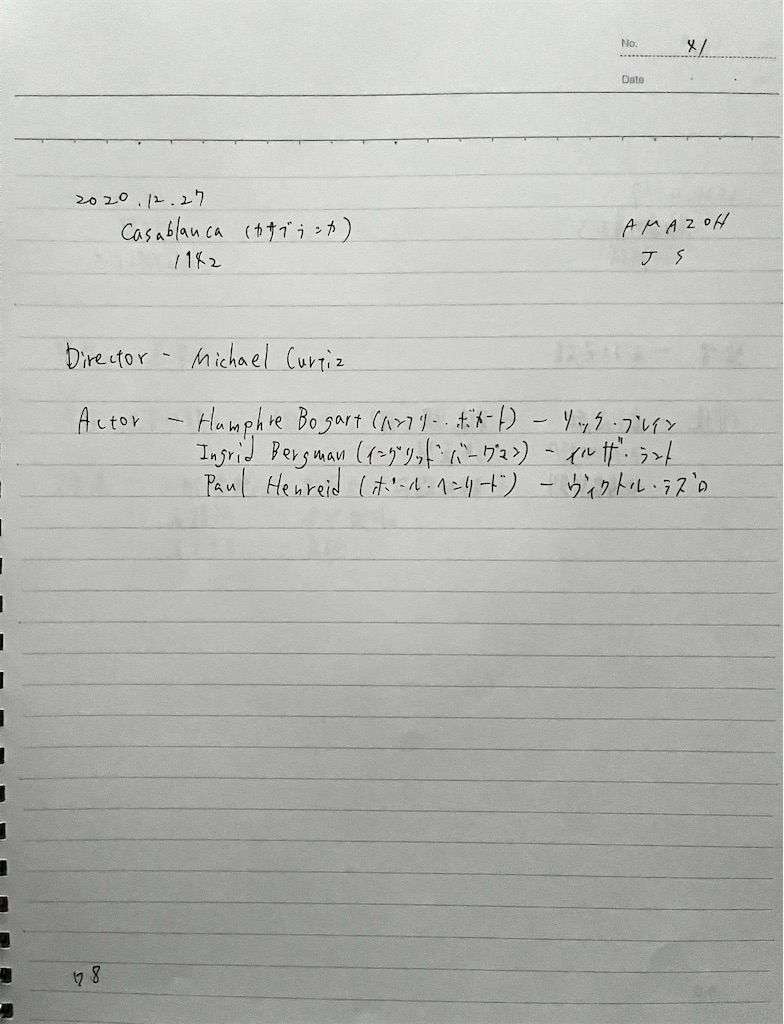 No. 41
Date
2020.12.27
Casablanca (カサブランカ)
AMAZON
1942
J S
Director - Michael Curtiz
Actor - Humphre Bogart (ハンフリー・ボガート) - リック・ブレイン
Ingrid Bergman (イングリッド・バーグマン) - イルザ・ラント
Paul Henreid (ポール・ヘンリード) - ヴィクトル・ラズロ
78